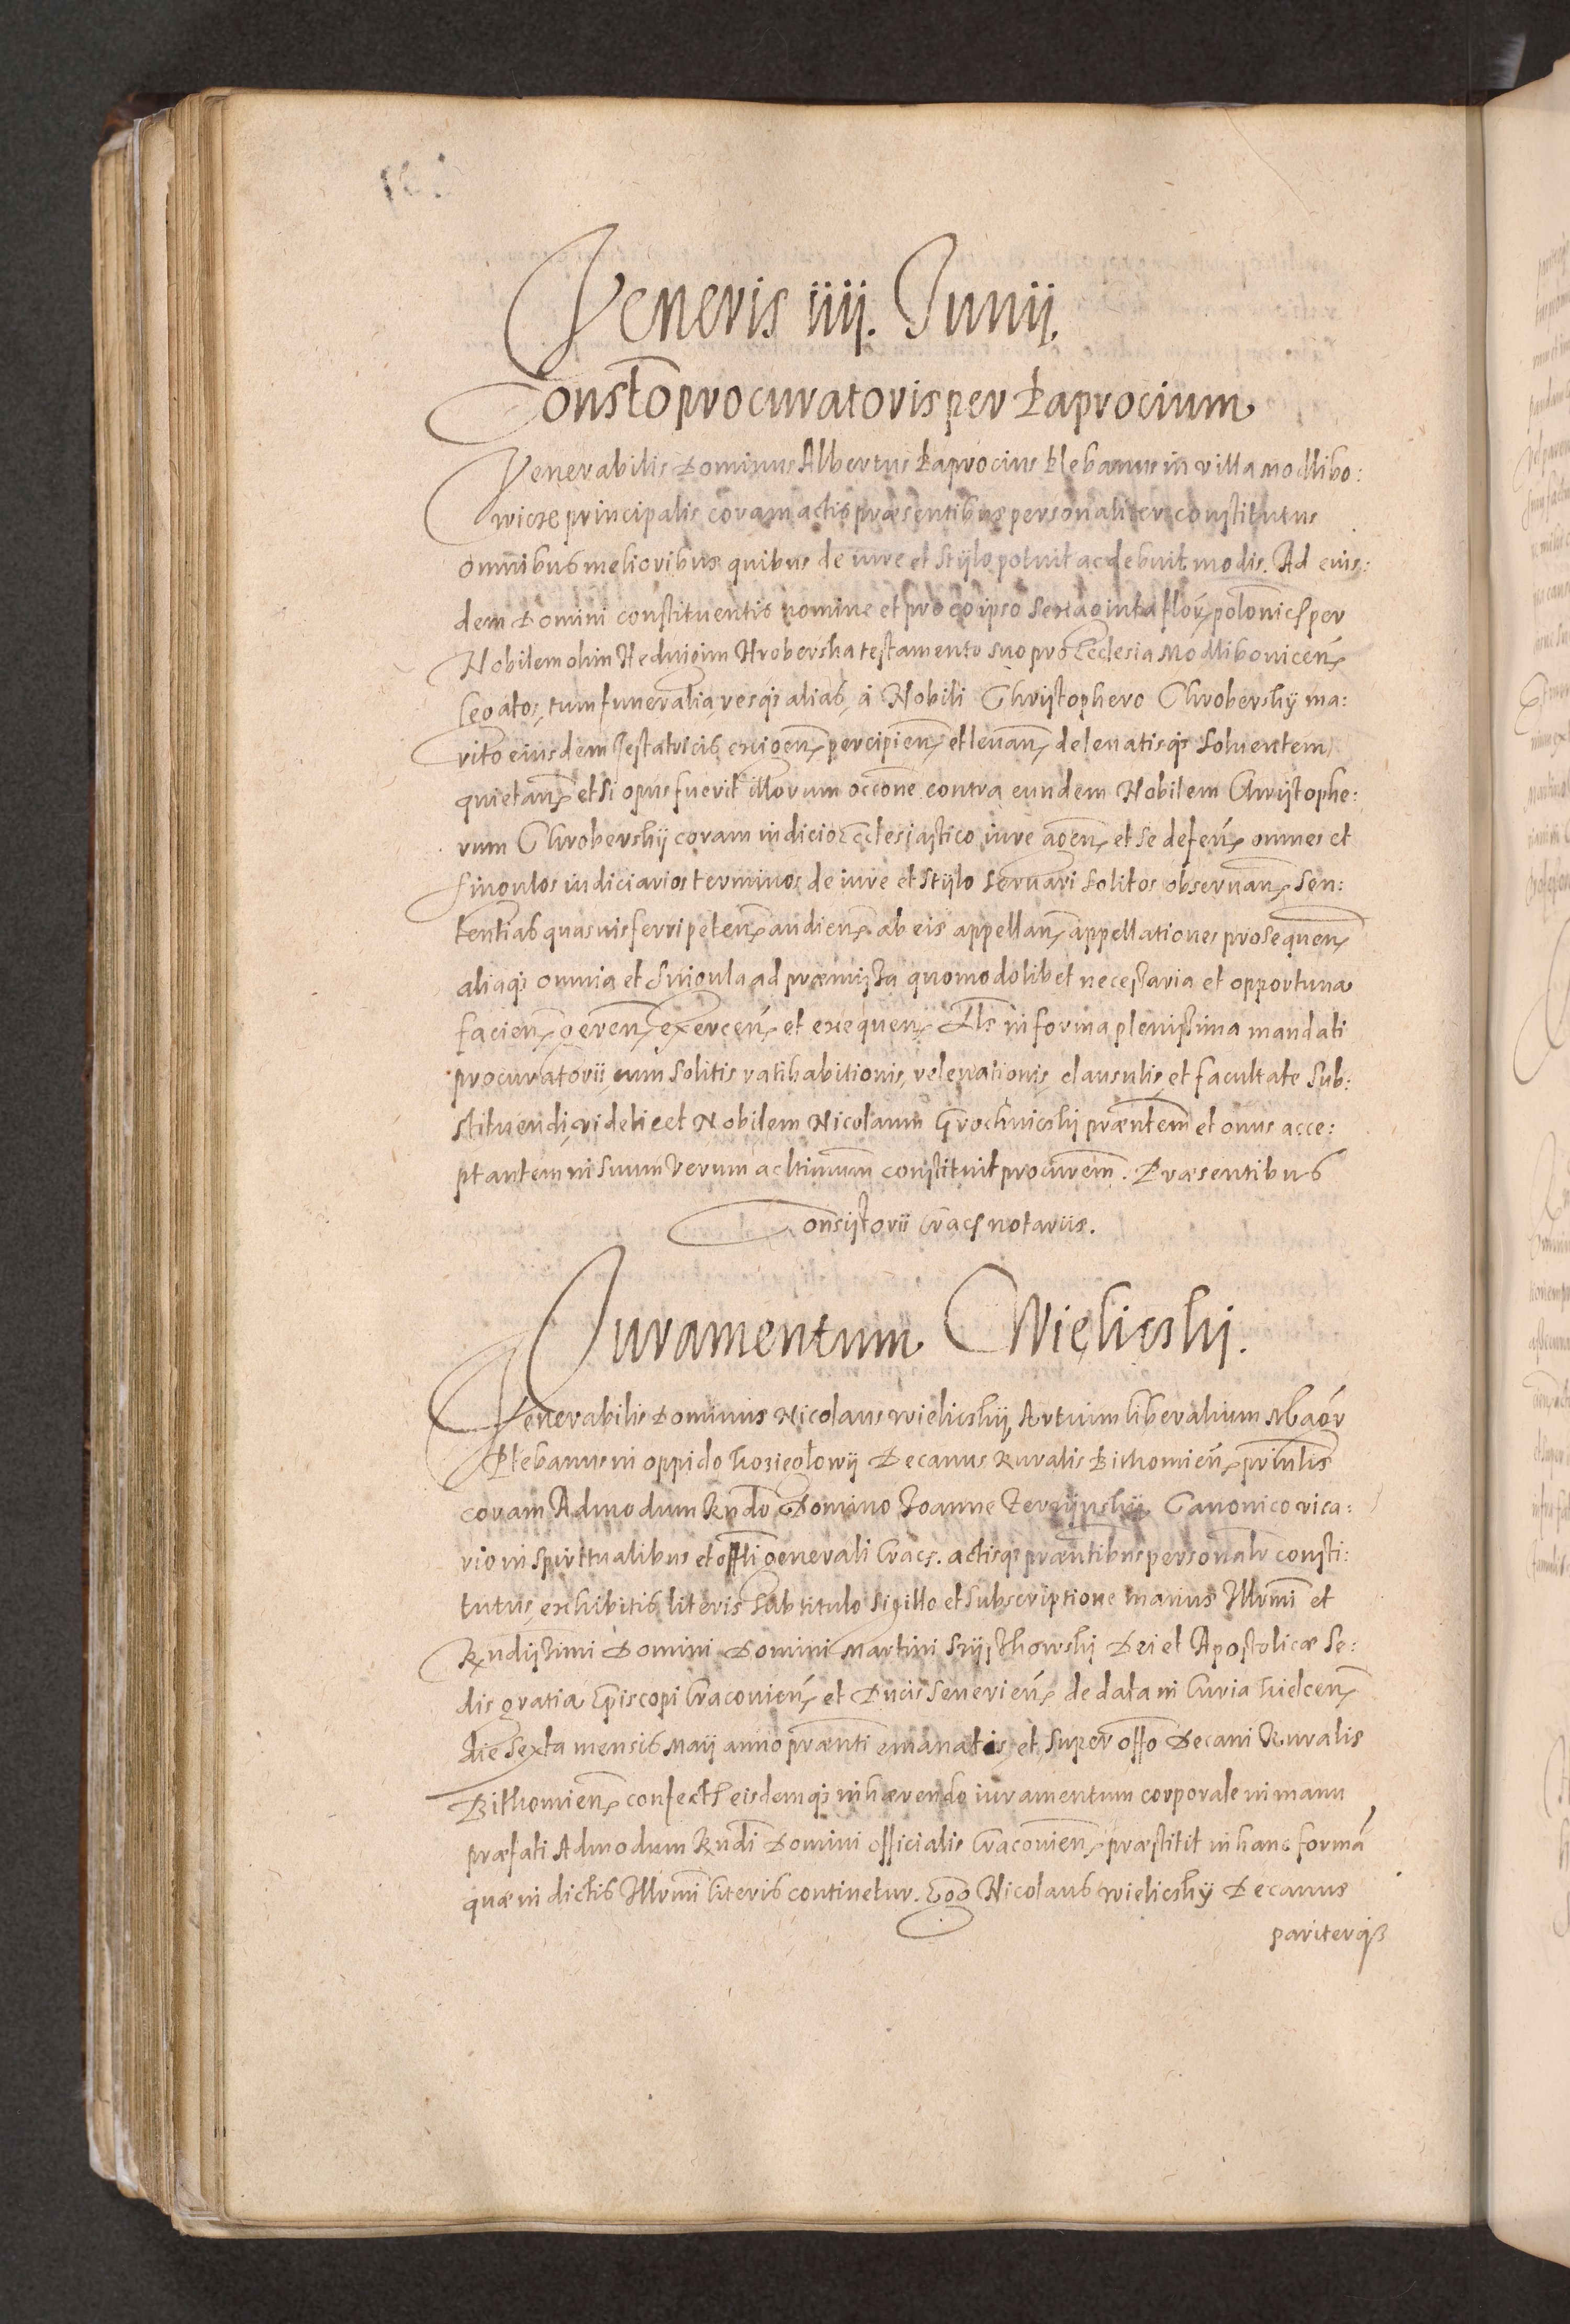 Veneris iiij. Junij.
Constõ procuratoris per Paprocium
Venerabilis Dominus Albertus Paprocius Plebanus in villa Modlibo:
wicze principalis coram actis præsentibus personaliter constitutus
omnibus melioribus quibus de iure et stylo potuit ac debuit modis. Ad eius:
dem Domini constituentis nomine et pro eo ipso sexaginta floŕ polonic per
Nobilem olim Heduigim Hroberska testamento suo pro Ecclesia Modlibouiceń
legatos, tum funeralia, resq; alias, à Nobili Christophero Chroberskÿ ma:
rito eiusdem Testatricis exigeń percipień et leuań de leuatisq; soluentem
quietań et si opus fuerit illorum occõne contra eundem Nobilem Christophe:
rum Chroberskÿ coram iudicio Ecclesiastico iure ageń et se defeń omnes et
singulos iudiciarios terminos de iure et stÿlo seruari solitos obseruań Sen:
tentias quasuis ferri peteń audień ab eis appellań appellationes prosequeń
aliaq; omnia et singula ad præmissa quomodolibet necessaria et opportuna
facień gereń exerceń et exequeń Als in forma plenissima mandati
procuratorii cum solitis ratihabitionis, releuationis clausulis, et facultate sub:
stituendi, videlicet Nobilem Nicolaum Grochiucskj præntem et onus acce:
ptantem in suum verum ac ltimum constituit procurem̃. Præsentibus
Consistorii Crac notariis.
Juramentum Wielicskj.
Venerabilis Dominus Nicolaus Wielicskÿ, Artium liberalium Magr
Plebanus in oppido Kozieglowÿ Decanus Ruralis Bithomień prinlis
coram Admodum Rndo Domino Joanne Canonico vica:
rio in spiritualibus et offli generali Crac. actisq; præntibus personalr consti:
tutus, exhibitis literis sub titulo sigillo et subscriptione manus Illrmi et
Rndissimi Domini Domini Martini Szÿskowskj Dei et Apostolicæ Se:
dis gratia Episcopi Cracouień et Ducis Seuerień de data in Curia Kielceń
die sexta mensis Maij anno prænti emanatis, et super offo Decani Ruralis
Bithomień confect eisdemq; inhærendo iuramentum corporale in manu
præfati Admodum Rndi Domini officialis Cracouień præstitit in hanc formã
quæ in dictis Illrmi literis continetur. Ego Nicolaus Wielicskÿ Decanus
pariterq;